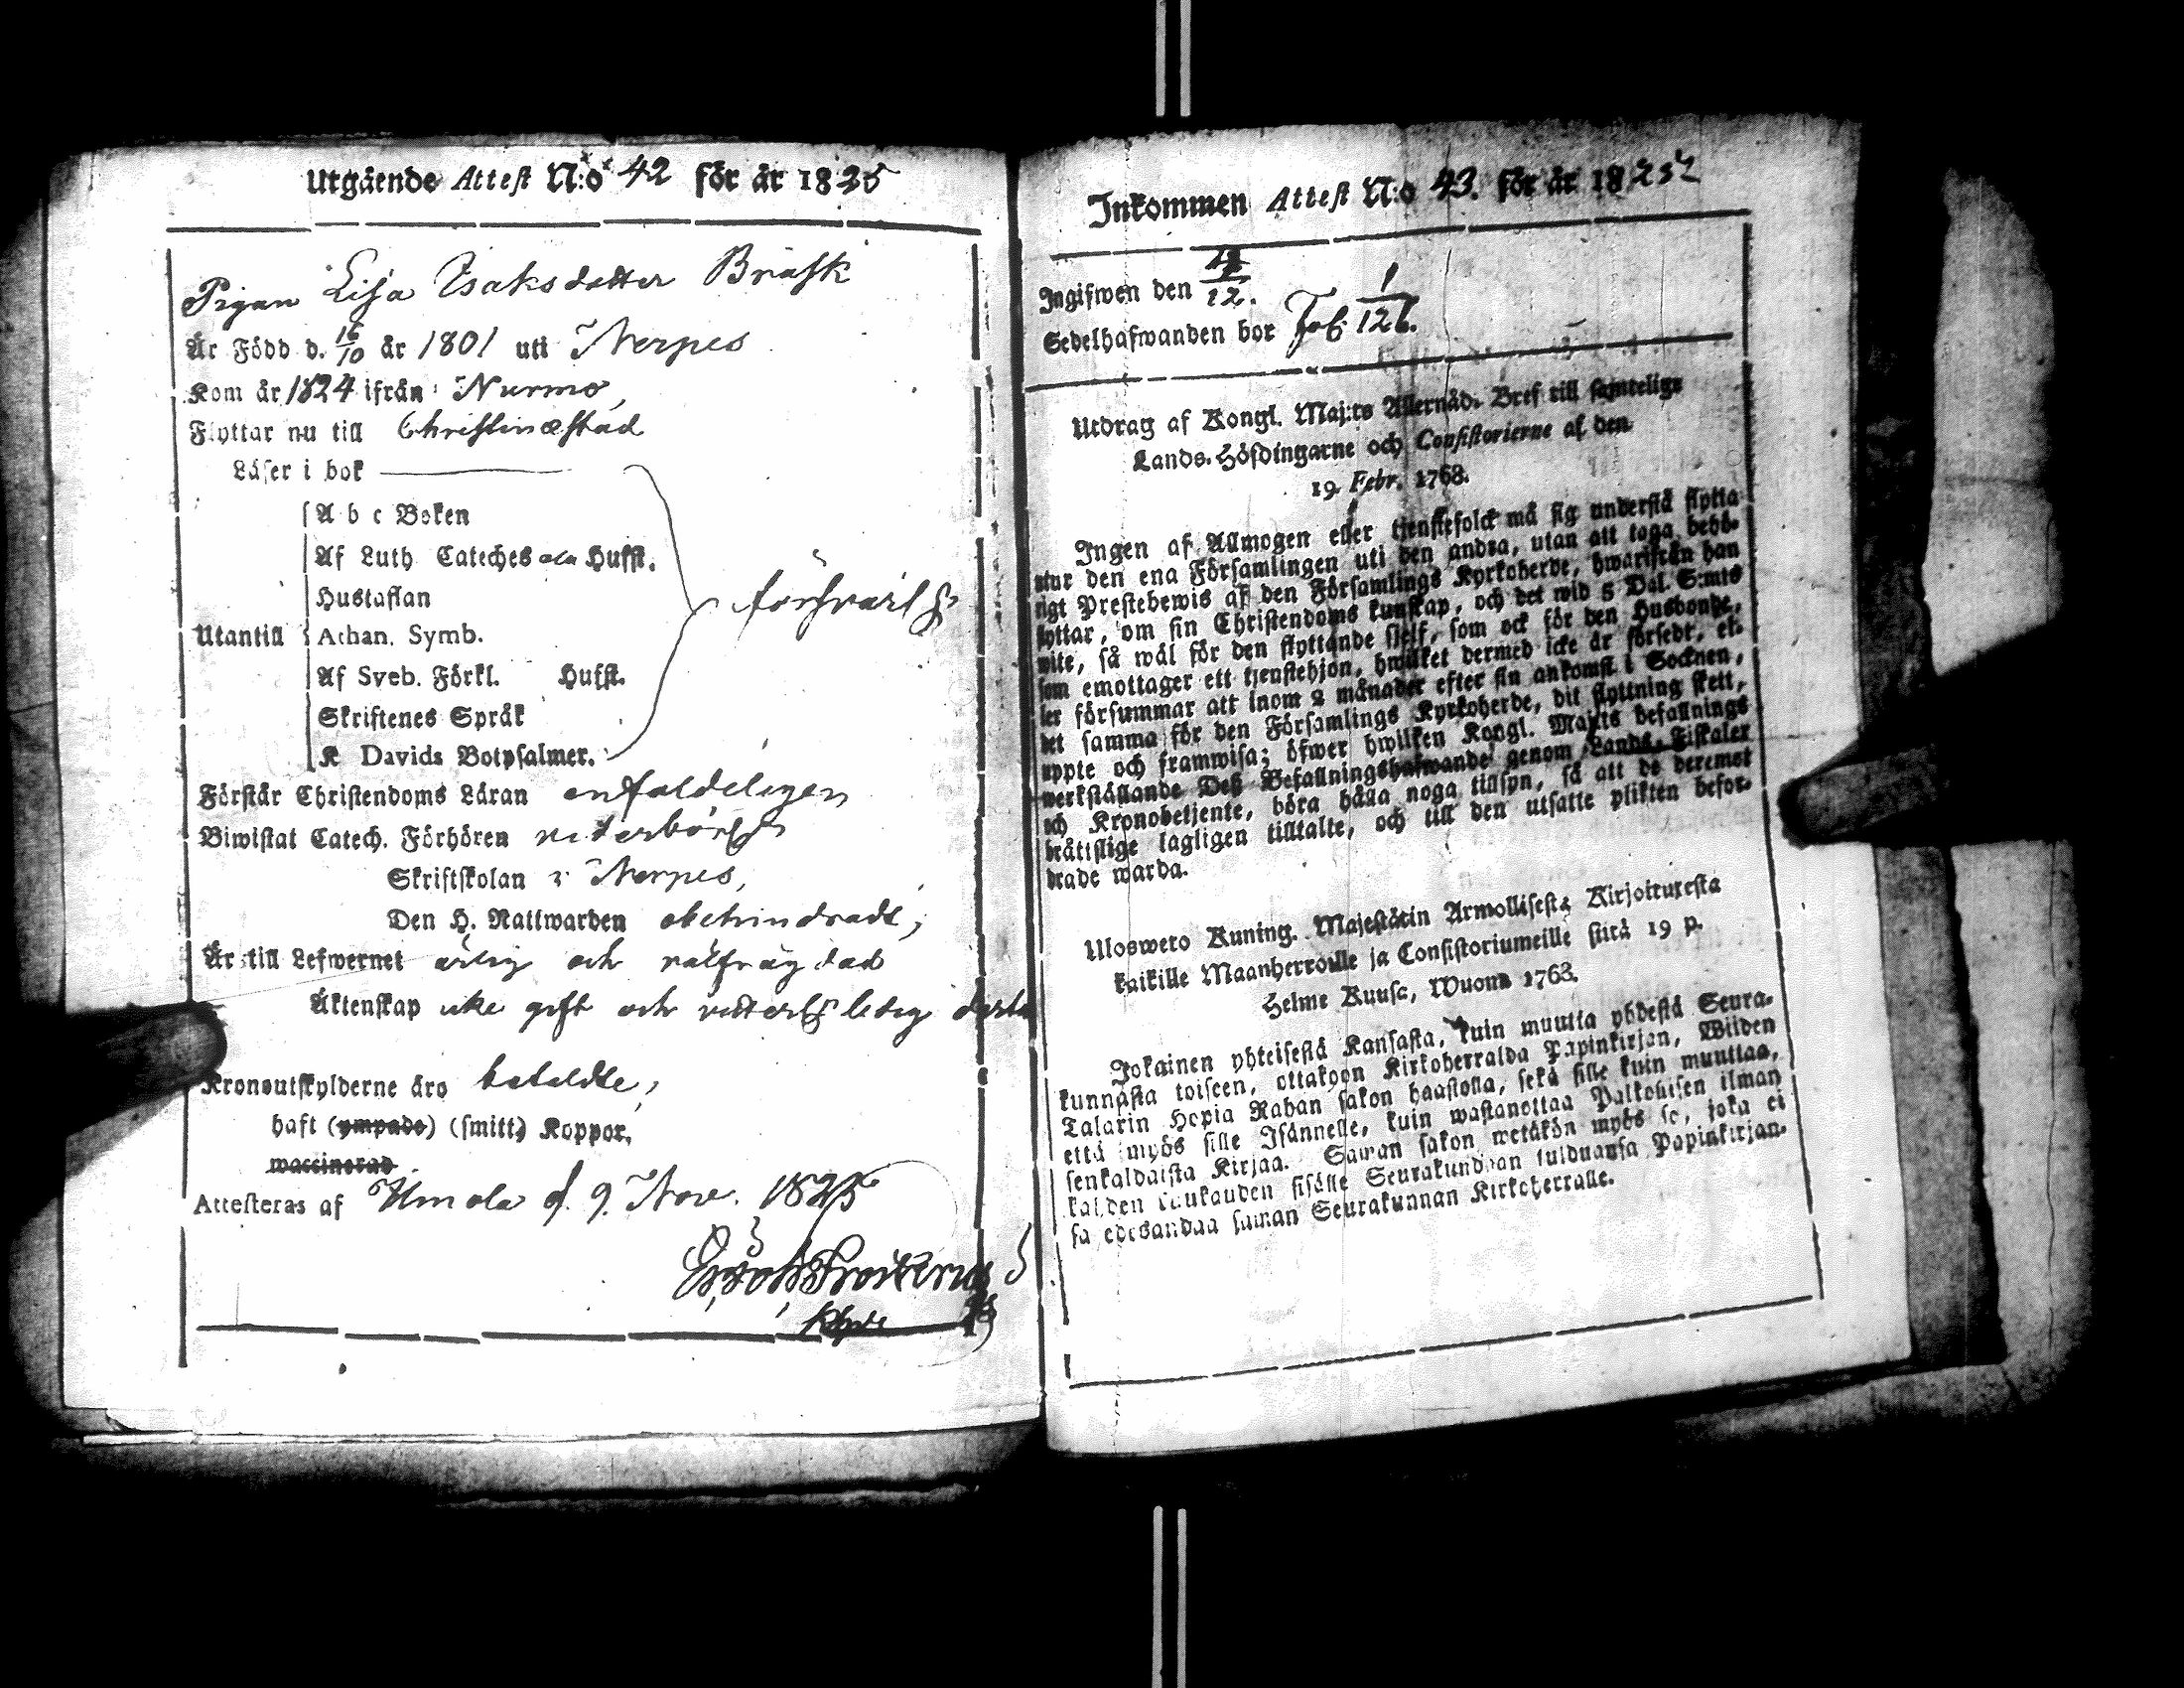 Utgående Attest N:o 42 för år 1825
Pigan Lisa Isaksdotter Brask
Är Född d. 16/10 år 1801 uti Nerpes
Kom år 1824 ifrån Nurmo,
Flyttar nu till Christinæstad
Läser i bok
A b c Boken
Af Luth Cateches Hufst.
Hustaflan
Utantill Athan. Symb. försvarl
Af Sveb. Förkl. Hufst.
Skriftenes Språk
K Davids Botpsalmer.
Förstår Christendoms Läran enfaldeligen
Biwistat Catech. Förhören
Skriftskolan i Nerpes,
Den H. Nattwarden obehindradt,
Är till Lefwernet ärlig och välfrägdad
Äktenskap icke gift och ledig
Kronoutskylderne äro betaldte,
haft (ympade) (smitt) Koppor,
waccinerad
Attesteras af Ilmola d. 9. Nov. 1825
Inkommen Attest N:o 43. för år 1825
Ingifwen den 4/12.
Sedelhafwanden bor Fol. 1/126.
Utdrag af Kongl. Maj:ts Allernåd. Bref till samtelige
Lands-Höfdingarne och Consistorierne af den
19 Febr. 1768.
Ingen af Allmogen eller tjenstefolck må sig understå flytta
utur den ena Församlingen uti den andra, utan att taga behö-
rigt Prestebewis af den Församlings Kyrkoherde, hwarifrån han
flyttar, om sin Christendoms kunskap, och det wid 5 Dal. S:mts
wite, så wäl för den flyttande sjelf, som ock för den Husbonde,
som emottager ett tjenstehjon, hwilket dermed icke är försedt, el-
ler försummar att inom 2 månader efter sin ankomst i Socknen,
det samma för den Församlings Kyrkoherde, dit flyttning skett,
uppte och framwisa; öfwer hwilken Kongl. Maj:ts befallnings
werkställande Deß Befallningshafwande genom Lands-Fiskaler
och Kronobetjente, böra hålla noga tillsyn, så att de deremot
bråttslige lagligen tilltalte, och till den utsatte plikten befor-
drade warda.
Uloswero Kuning. Majestätin Armollisesta Kirjoituxesta
kaikille Maanherroille ja Consistoriumeille siitä 19 p.
Helme Kuusa, Wuonn 1763.
Jokainen yhteisestä Kansasta, kuin muutta yhdestä Seura-
kunnasta toiseen, ottakoon Kirkoherralda Papinkirjan, Wiiden
Talarin Hopia Rahan sakon haastolla, sekä sille kuin muuttaa,
että myös sille Isännelle, kuin wastanottaa Palkollisen ilman
senkaldaista Kirjaa. Saman sakon wetäkön myös se, joka ei
kahden Kuukauden sisälle Seurakundaan tulduansa Papinkirjan-
sa edesandaa saman Seurakunnan Kirkoherralle.